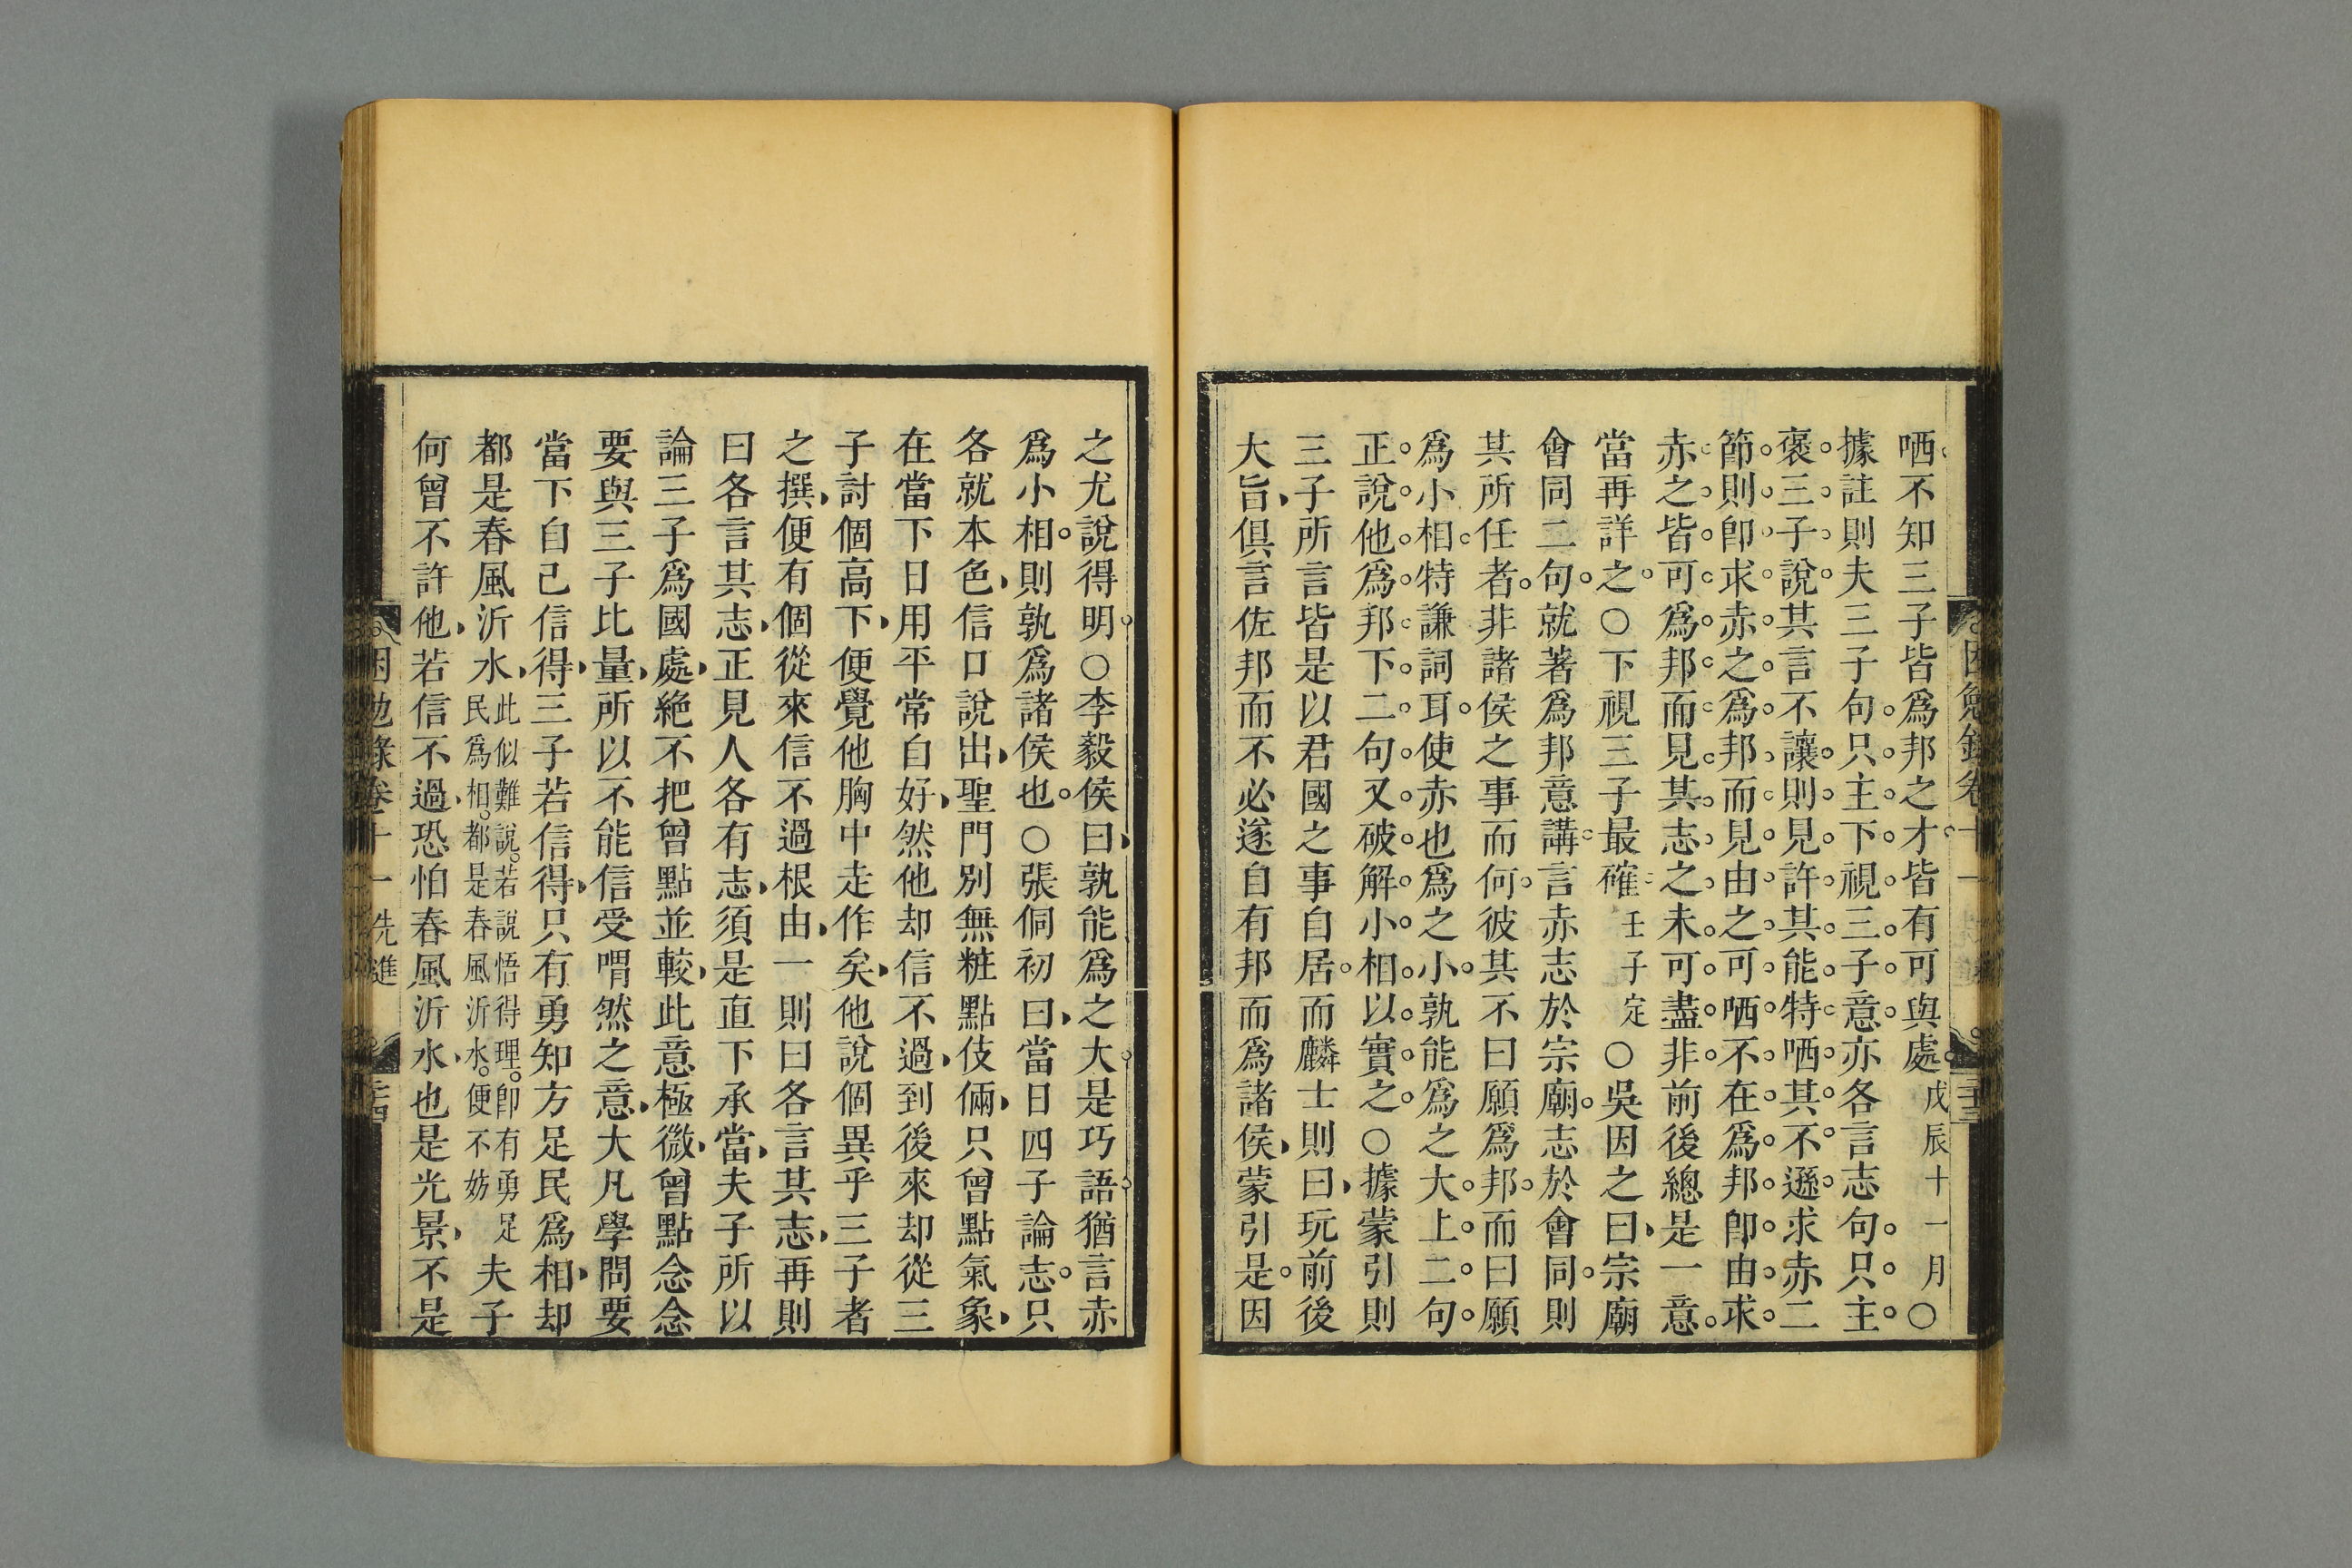 哂不知三子皆爲邦之才皆有可與處戊辰十一月○
據註則夫三子句只主下視三子意亦各言志句只主
褒三子說其言不讓則見許其能特哂其不遜求赤二
節則卽求赤之爲邦而見由之可哂不在爲邦卽由求
赤之皆可爲邦而見其志之未可盡非前後總是一意
當再詳之○下視三子最確壬子定○吳因之曰宗廟
會同二句就著爲邦意講言赤志於宗廟志於會同則
其所任者非諸侯之事而何彼其不曰願爲邦而曰願
爲小相特謙詞耳使赤也爲之小孰能爲之大上二句
正說他爲邦下二句又破解小相以實之○據蒙引則
三子所言皆是以君國之事自居而麟士則曰玩前後
大旨俱言佐邦而不必遂自有邦而爲諸侯蒙引是因
之尤說得明○李毅侯曰孰能爲之大是巧語猶言赤
爲小相則孰爲諸侯也○張侗初曰當日四子論志只
各就本色信口說出聖門別無粧點伎倆只曾點氣象
在當下日用平常自好然他却信不過到後來却從三
子討個高下便覺他胸中走作矣他說個異乎三子者
之撰便有個從來信不過根由一則曰各言其志再則
曰各言其志正見人各有志須是直下承當夫子所以
論三子爲國處絕不把曾點並較此意極微曾點念念
要與三子比量所以不能信受喟然之意大凡學問要
當下自己信得三子若信得只有勇知方足民爲相却
都是春風沂水此似難說若說悟得理卽有勇足民爲相都是春風沂水便不妨夫子
何曾不許他若信不過恐怕春風沂水也是光景不是
困勉錄卷十一 先進